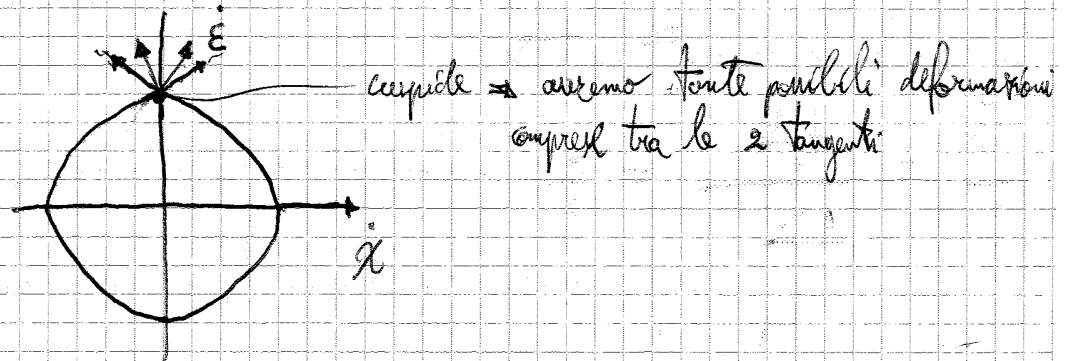 ε̇
cuspide ⇒ avremo tante possibili deformazioni
comprese tra le 2 tangenti
χ̇